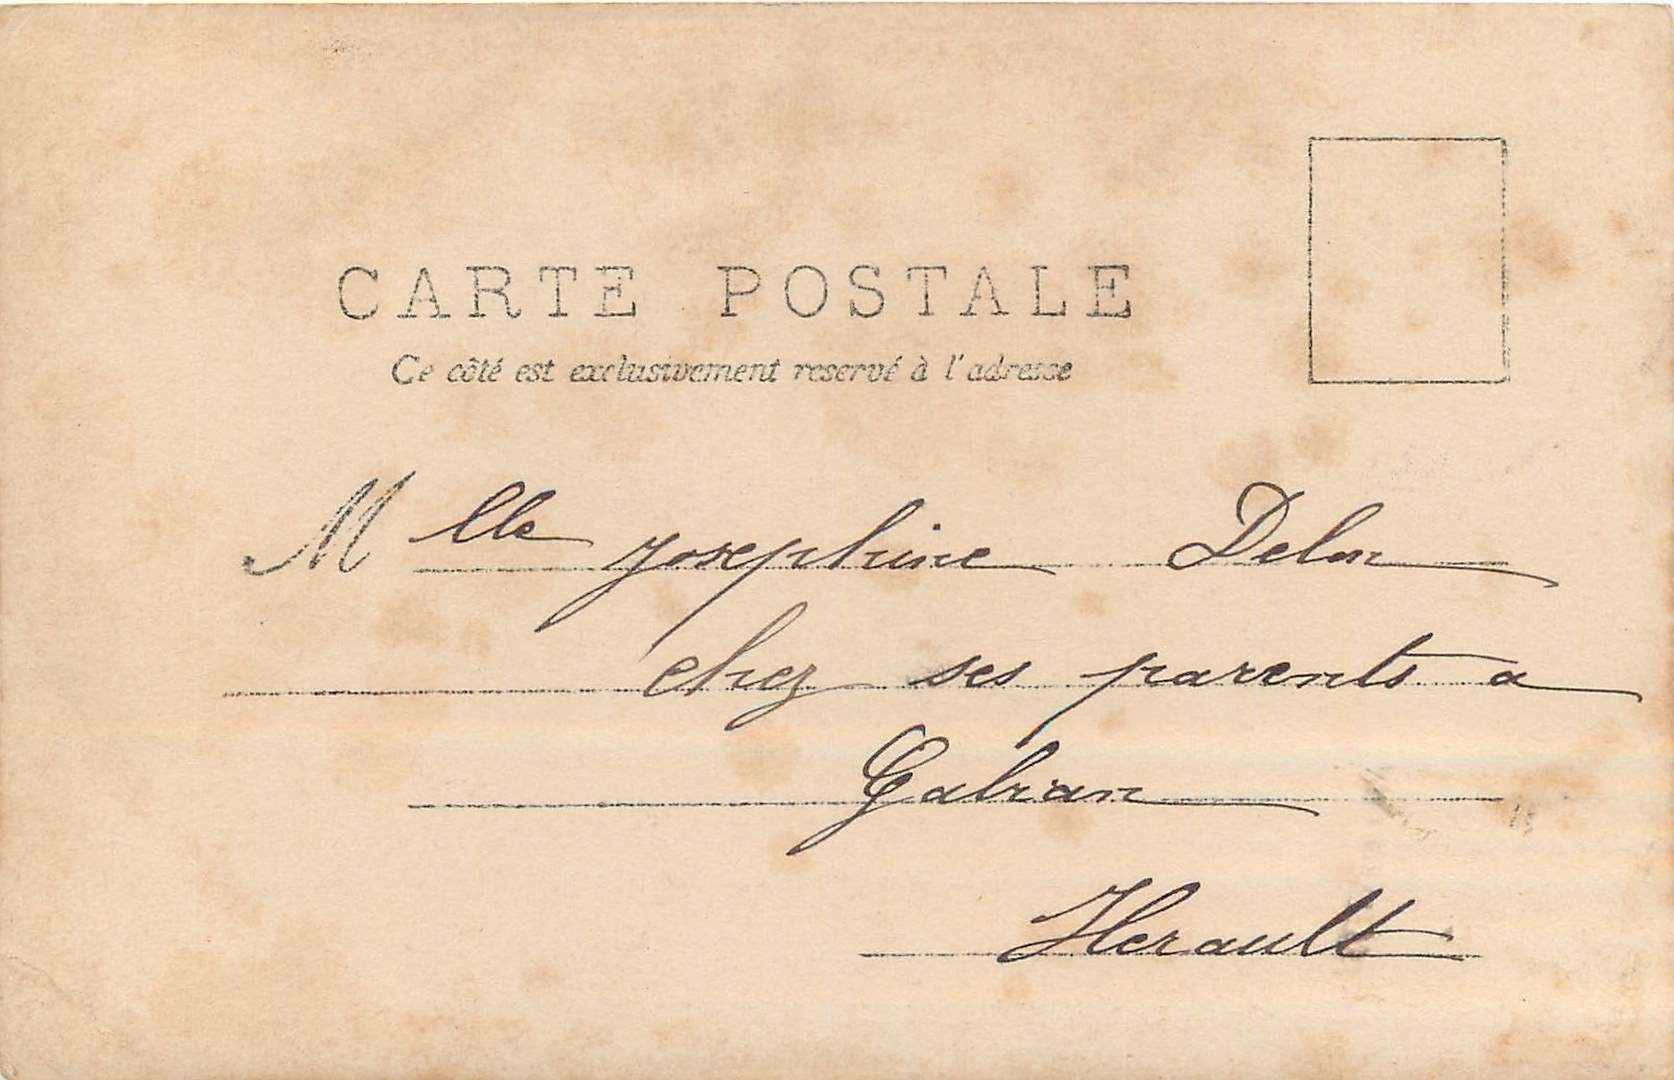 CARTE POSTALE
Ce côté est exclusivement reservé à l'adresse
Mlle Josephine Delon
chez ses parents a
Gabian
Herault